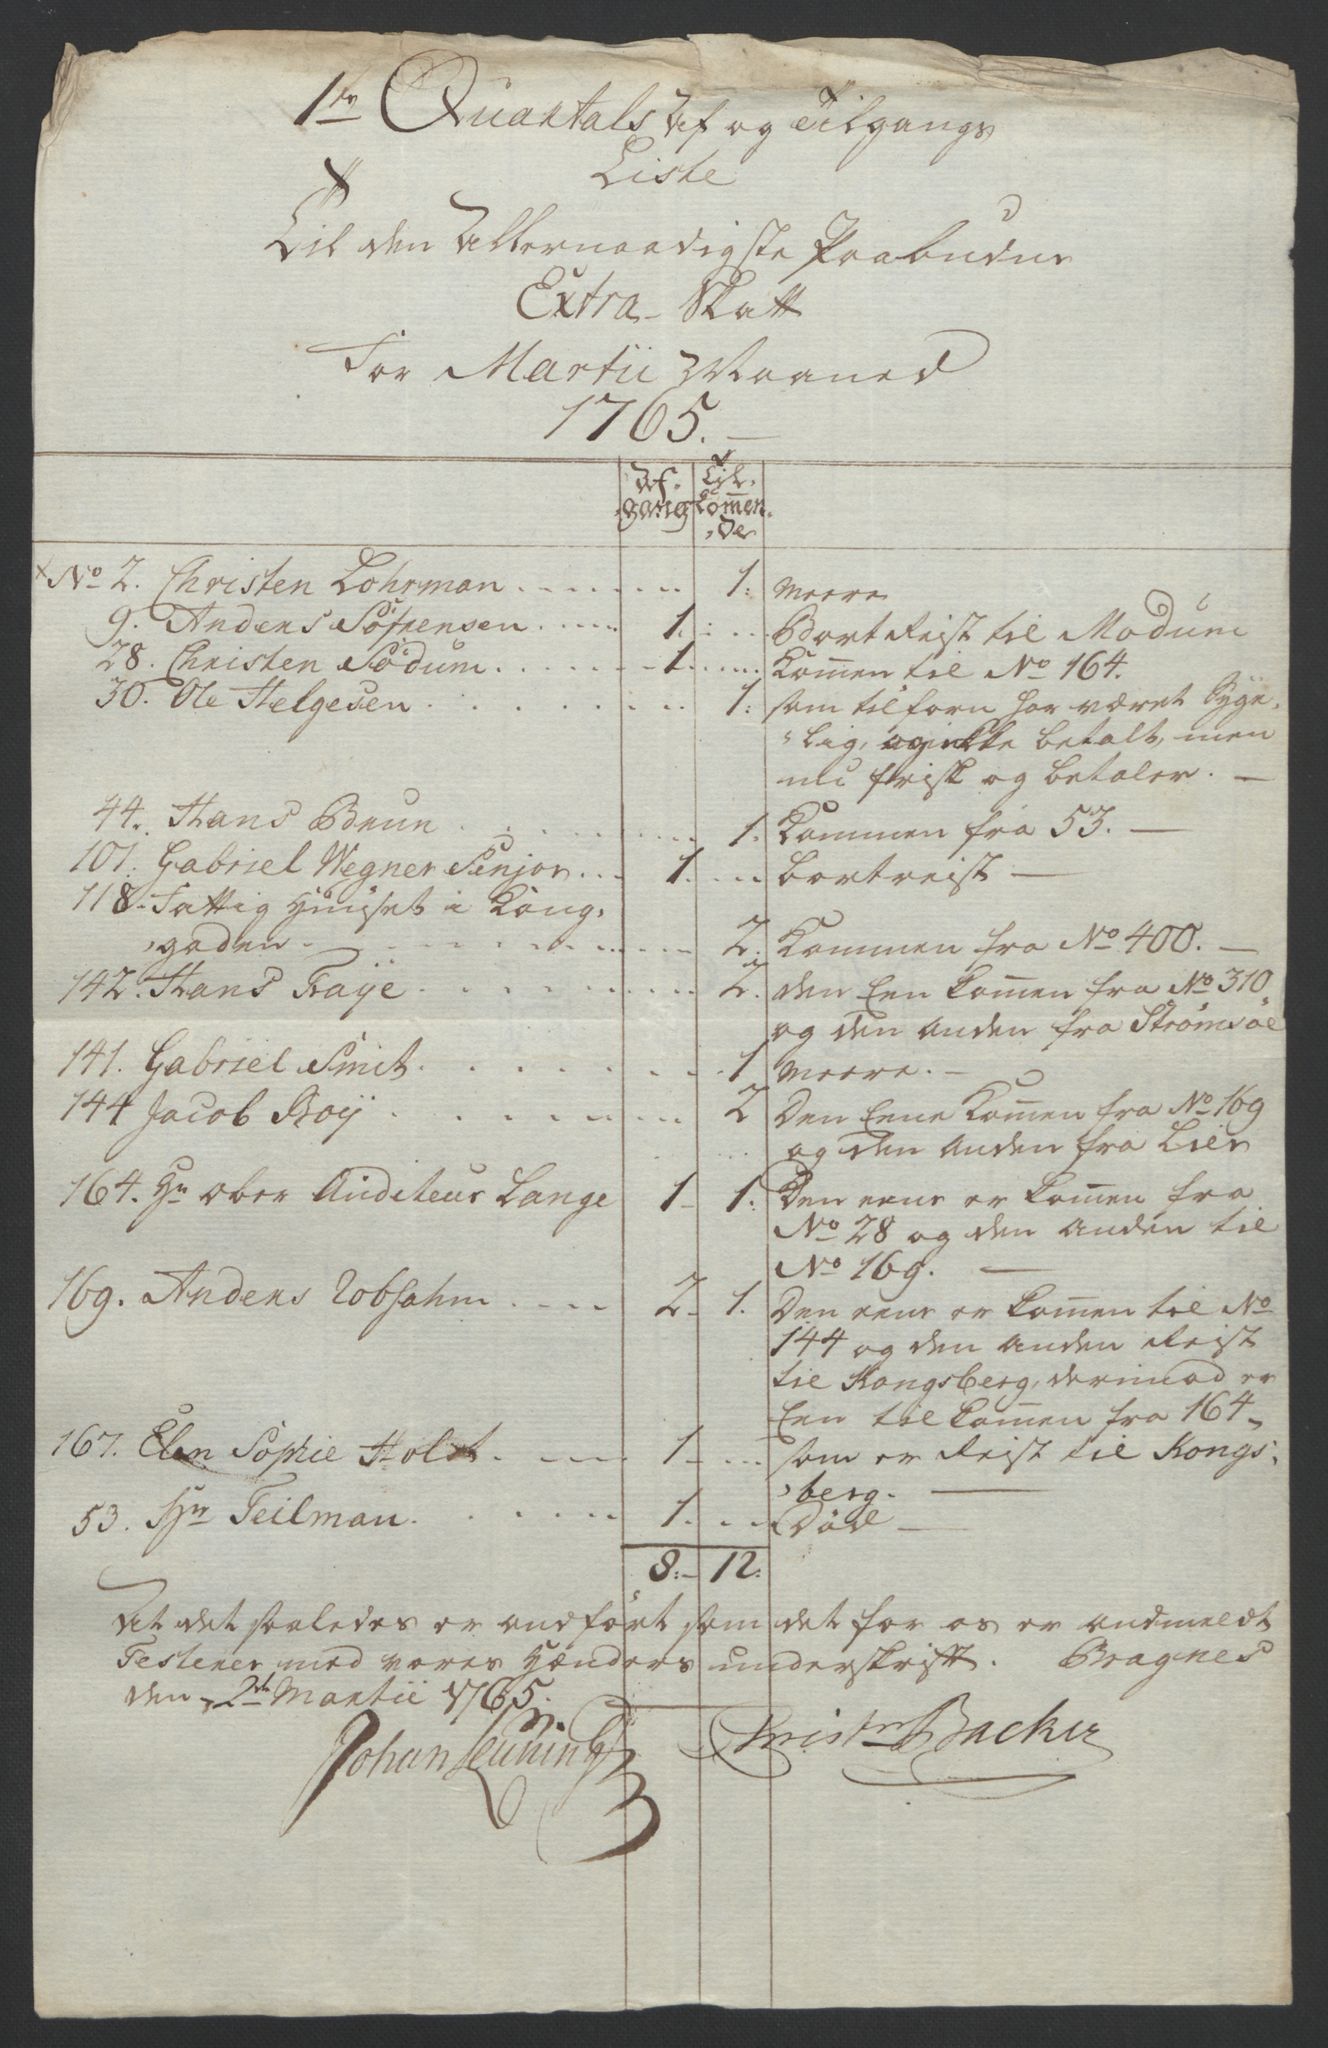 1te Quartals Af og Tilgangs
Liste
Til den Allernaadigste Paabudne
Extra Skatt
For Martii Maaned
1765.
Af- Til-
gang Kommen-
de
No 2. Christen Lohrman 1: meere
9. Anders Sørrensen 1. Bort Reist til Modum
28. Christen Sødum 1 Kommen til No 164.
30. Ole Helgesen 1: som tilforn har været Syge-
lig, og ikke betalt, men
nu frisk og betaler.
44. Hans Bruun 1. Kommen fra 53.
101. Gabriel Wegner Senjor 1. bortreist
118. Fattig Huuset i Kong-
gaden 2. Kommen fra No 400.
142. Hans Faÿe 2. den Een kommen fra No 310
og den anden fra Strømsöe
141. Gabriel Smit 1 meere.
144 Jacob Roÿ 2 Den Eene Kommen fra No 169
og den anden fra Lier
164. Hr ober Auditeur Lange 1 1. Den eene er kommen fra
No 28 og den anden til
No 169.
169. Anders Robsahm 2 1. Den eene er kommen til No
144 og den anden Reist
til Kongsberg, derimod er
Een til kommen fra 164
167. Elen Sophie Holst 1 som er Reist til Kongs-
berg.
53. Hr Teilman 1. Død
8. 12.
At det saaledes er andført som det for os er andmeldt
Testerer med vores Hænders underskrift. Bragnes
den 2de Martii 1765.
Johan Christen Backer